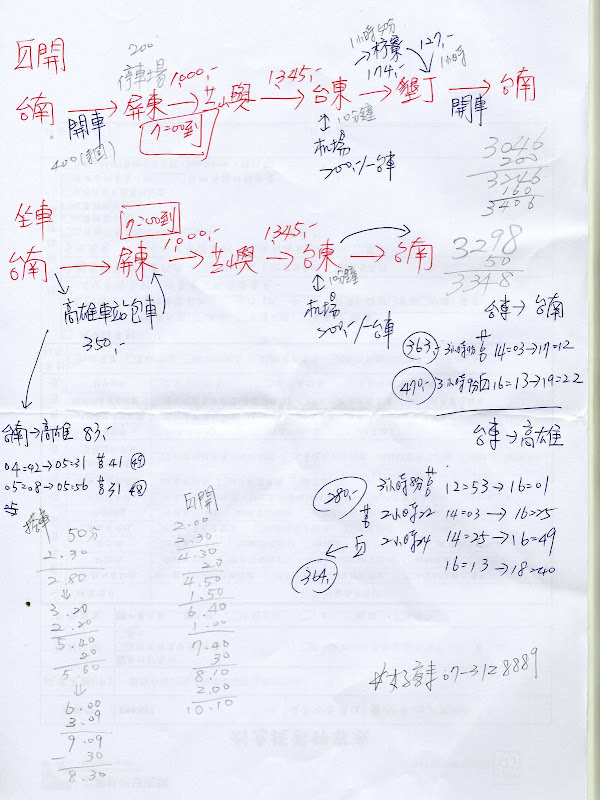 自開
200
停車場
1小時50分
枋寮
127,-
1小時
1,000,-
1,345,-
174,-
台南 → 屏東 → 蘭嶼 → 台東 → 墾丁 → 台南
開車
7=00到
10分鐘
開車
400(來回)
机場
200,-/一台車
3046
200
3246
160
3406
坐車
7=00到
1,000,-
1,345,-
台南 → 屏東 → 蘭嶼 → 台東 → 台南
3298
50
3348
高雄車站包車
350,-
10分鐘
机場
200,-/一台車
台東 → 台南
363,- 3小時9分 莒 14=03→17=12
470,- 3小時9分 自 16=13→19=22
台東 → 高雄
台南→高雄 83,-
04=42→05=31 莒41 49
05=08→05=56 莒31 48
280,- 3小時8分 莒 12=53→16=01
莒 2小時22 14=03→16=25
自 2小時24 14=25→16=49
364,- 16=13→18=40
50分
2.30
2.80
3.20
2.20
5.40
20
5.60
6.00
3.09
9.09
30
8.30
自開
2.00
2.30
4.30
20
4.50
1.50
6.40
1.00
7.40
30
8.10
2.00
10.10
07-3128889